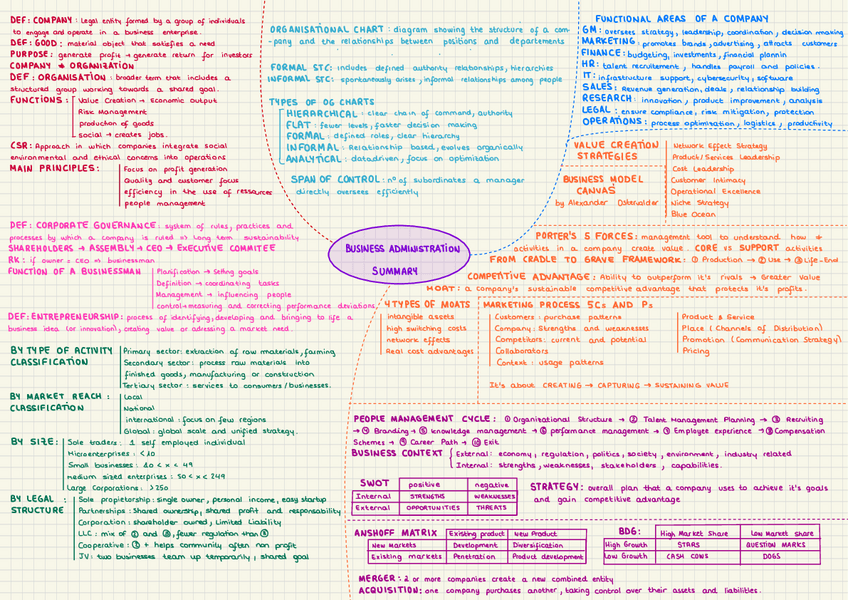 DEF: COMPANY: Legal entity formed by a group of individuals
to engage and operate in a business enterprise.
DEF: GOOD: material object that satisfies a need
PURPOSE: generate profit → generate return for investors
COMPANY ≠ ORGANIZATION
DEF: ORGANISATION: broader term that includes a
structured group working towards a shared goal.
FUNCTIONS: Value Creation → Economic output
Risk Management
production of goods
social → creates jobs.
CSR: Approach in which companies integrate social
environmental and ethical concerns into operations
MAIN PRINCIPLES: Focus on profit generation
Quality and customer focus
efficiency in the use of ressources
people management
DEF: CORPORATE GOVERNANCE: system of rules, practices and
processes by which a company is ruled → long term sustainability
SHAREHOLDERS → ASSEMBLY → CEO → EXECUTIVE COMMITEE
RK: if owner = CEO → businessman
FUNCTION OF A BUSINESSMAN Planification → Setting goals
Definition → coordinating tasks
Management → influencing people
control → measuring and correcting performance deviations
DEF: ENTREPRENEURSHIP: process of identifying, developing and bringing to life a
business idea (or innovation), creating value or adressing a market need.
BY TYPE OF ACTIVITY
CLASSIFICATION
Primary sector: extraction of raw materials, farming
Secondary sector: process raw materials into
finished goods, manufacturing or construction
Tertiary sector: services to consumers/businesses.
BY MARKET REACH:
CLASSIFICATION
Local
National
international: focus on few regions
Global: global scale and unified strategy.
BY SIZE: Sole traders: 1 self employed individual
Microenterprises: < 10
Small businesses: 10 < x < 49
medium sized enterprises: 50 < x < 249
Large Corporations: > 250
BY LEGAL :
STRUCTURE
Sole propietorship: single owner, personal income, easy startup
Partnerships: shared ownership, shared profit and responsability
Corporation: shareholder owned, Limited Liability
LLC: mix of ② and ③, fewer regulation than ③
Cooperative: + helps community often non profit
JV: two businesses team up temporarily, shared goal
ORGANISATIONAL CHART: diagram showing the structure of a com-
-pany and the relationships between positions and departements
FORMAL STC: includes defined authority relationships, hierarchies
INFORMAL STC: spontaneously arises, informal relationships among people
TYPES OF OG CHARTS
HIERARCHICAL: clear chain of command, authority
FLAT: fewer levels, faster decision making
FORMAL: defined roles, clear hierarchy
INFORMAL: Relationship based, evolves organically
ANALYTICAL: datadriven, focus on optimitation
SPAN OF CONTROL: nº of subordinates a manager
directly oversees efficiently
BUSINESS ADMINISTRATION
SUMMARY
FUNCTIONAL AREAS OF A COMPANY
GM: oversees strategy, leadership, coordination, decision making
MARKETING: promotes brands, advertising, attracts customers
FINANCE: budgeting, investments, financial plannin
HR: talent recruitement, handles payroll and policies.
IT: infrastructure support, cybersecurity, software
SALES: Revenue generation, deals, relationship building
RESEARCH: innovation, product improvement, analysis
LEGAL: ensure compliance, risk mitigation, protection
OPERATIONS: process optimitation, logistics, productivity
VALUE CREATION
STRATEGIES
BUSINESS MODEL
CANVAS
by Alexander Osterwalder
Network Effect Strategy
Product/Services Leadership
Cost Leadership
Customer Intimacy
Operational Excellence
Niche Strategy
Blue Ocean
PORTER'S 5 FORCES: management tool to understand how ≠
activities in a company create value. CORE vs SUPPORT activities
FROM CRADLE TO GRAVE FRAMEWORK: ① Production → ② Use → ③ Life-End
COMPETITIVE ADVANTAGE: Ability to outperform it's rivals → Greater value
MOAT: a company's sustainable competitive advantage that protects it's profits.
4 TYPES OF MOATS
intangible assets
high switching costs
network effects
Real cost advantages
MARKETING PROCESS 5Cs AND Ps
Customers: purchase patterns
Company: Strengths and weaknesses
Competitors: current and potential
Collaborators
Context: usage patterns
Product & Service
Place (Channels of Distribution)
Promotion (Communication Strategy)
Pricing
It's about CREATING → CAPTURING → SUSTAINING VALUE
PEOPLE MANAGEMENT CYCLE: ① Organitational Structure → ② Talent Management Planning → ③ Recruiting
→ ④ Branding → ⑤ knowledge management → ⑥ performance management → ⑦ Employee experience → ⑧ Compensation
Schemes → ⑨ Career Path → ⑩ Exit
BUSINESS CONTEXT External: economy, regulation, politics, society, environment, industry related
Internal: strengths, weaknesses, stakeholders, capabilities.
SWOT positive negative
Internal STRENGTHS WEAKNESSES
External OPPORTUNITIES THREATS
STRATEGY: overall plan that a company uses to achieve it's goals
and gain competitive advantage
ANSHOFF MATRIX Existing product New Product
New Markets Development Diversification
Existing markets Penetration Product development
BDG: High Market Share Low Market share
High Growth STARS QUESTION MARKS
Low Growth CASH COWS DOGS
MERGER: 2 or more companies create a new combined entity
ACQUISITION: one company purchases another, taking control over their assets and liabilities.